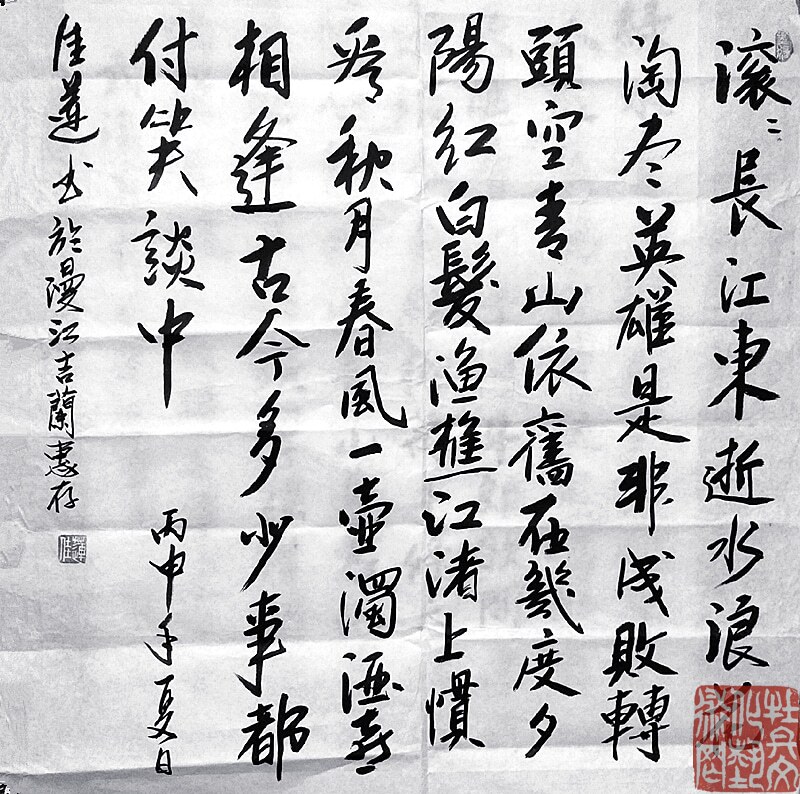 滚〻長江東逝水浪花
淘尽英雄是非成敗轉
頭空青山依舊在幾度夕
陽紅白髮渔樵江渚上慣
看秋月春風一壺濁酒喜
相逢古今多少事都
付笑談中
丙申年夏日
佳蓮书於漫江吉蘭惠存